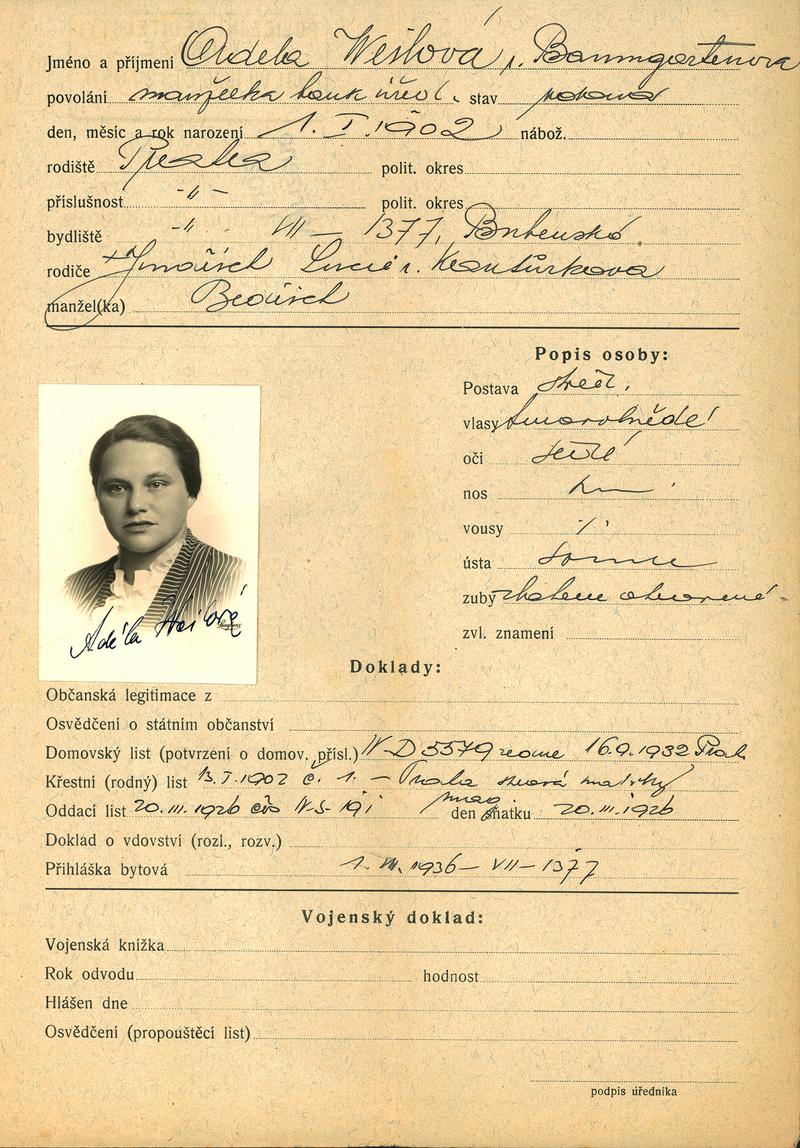 Jméno a příjmení Adela Weilová r. Baumgartenova
povolání manželka bank. úřed. stav vdaná
den, měsíc a rok narození 1. I. 1902 nábož.
rodiště Praha polit. okres
příslušnost -"- polit. okres
bydliště -"- VII – 1377, Bubenská
rodiče + Jindřich Lucie r.
manžel(ka) Bedřich
Popis osoby:
Postava střed.
vlasy tmavohnědé
oči šedé
nos
vousy
ústa
zuby
zvl. znamení
Adéla Weilová
Doklady:
Občanská legitimace z
Osvědčení o státním občanství
Domovský list (potvrzení o domov. přísl.) 16.9.1932
Křestní (rodný) list č. 1. – Praha matriky
Oddací list 20. III. 1926 mag. den sňatku 20. III. 1926
Doklad o vdovství (rozl., rozv.)
Přihláška bytová 1936 – VII – 1377
Vojenský doklad:
Vojenská knížka
Rok odvodu hodnost
Hlášen dne
Osvědčení (propouštěcí list)
podpis úředníka